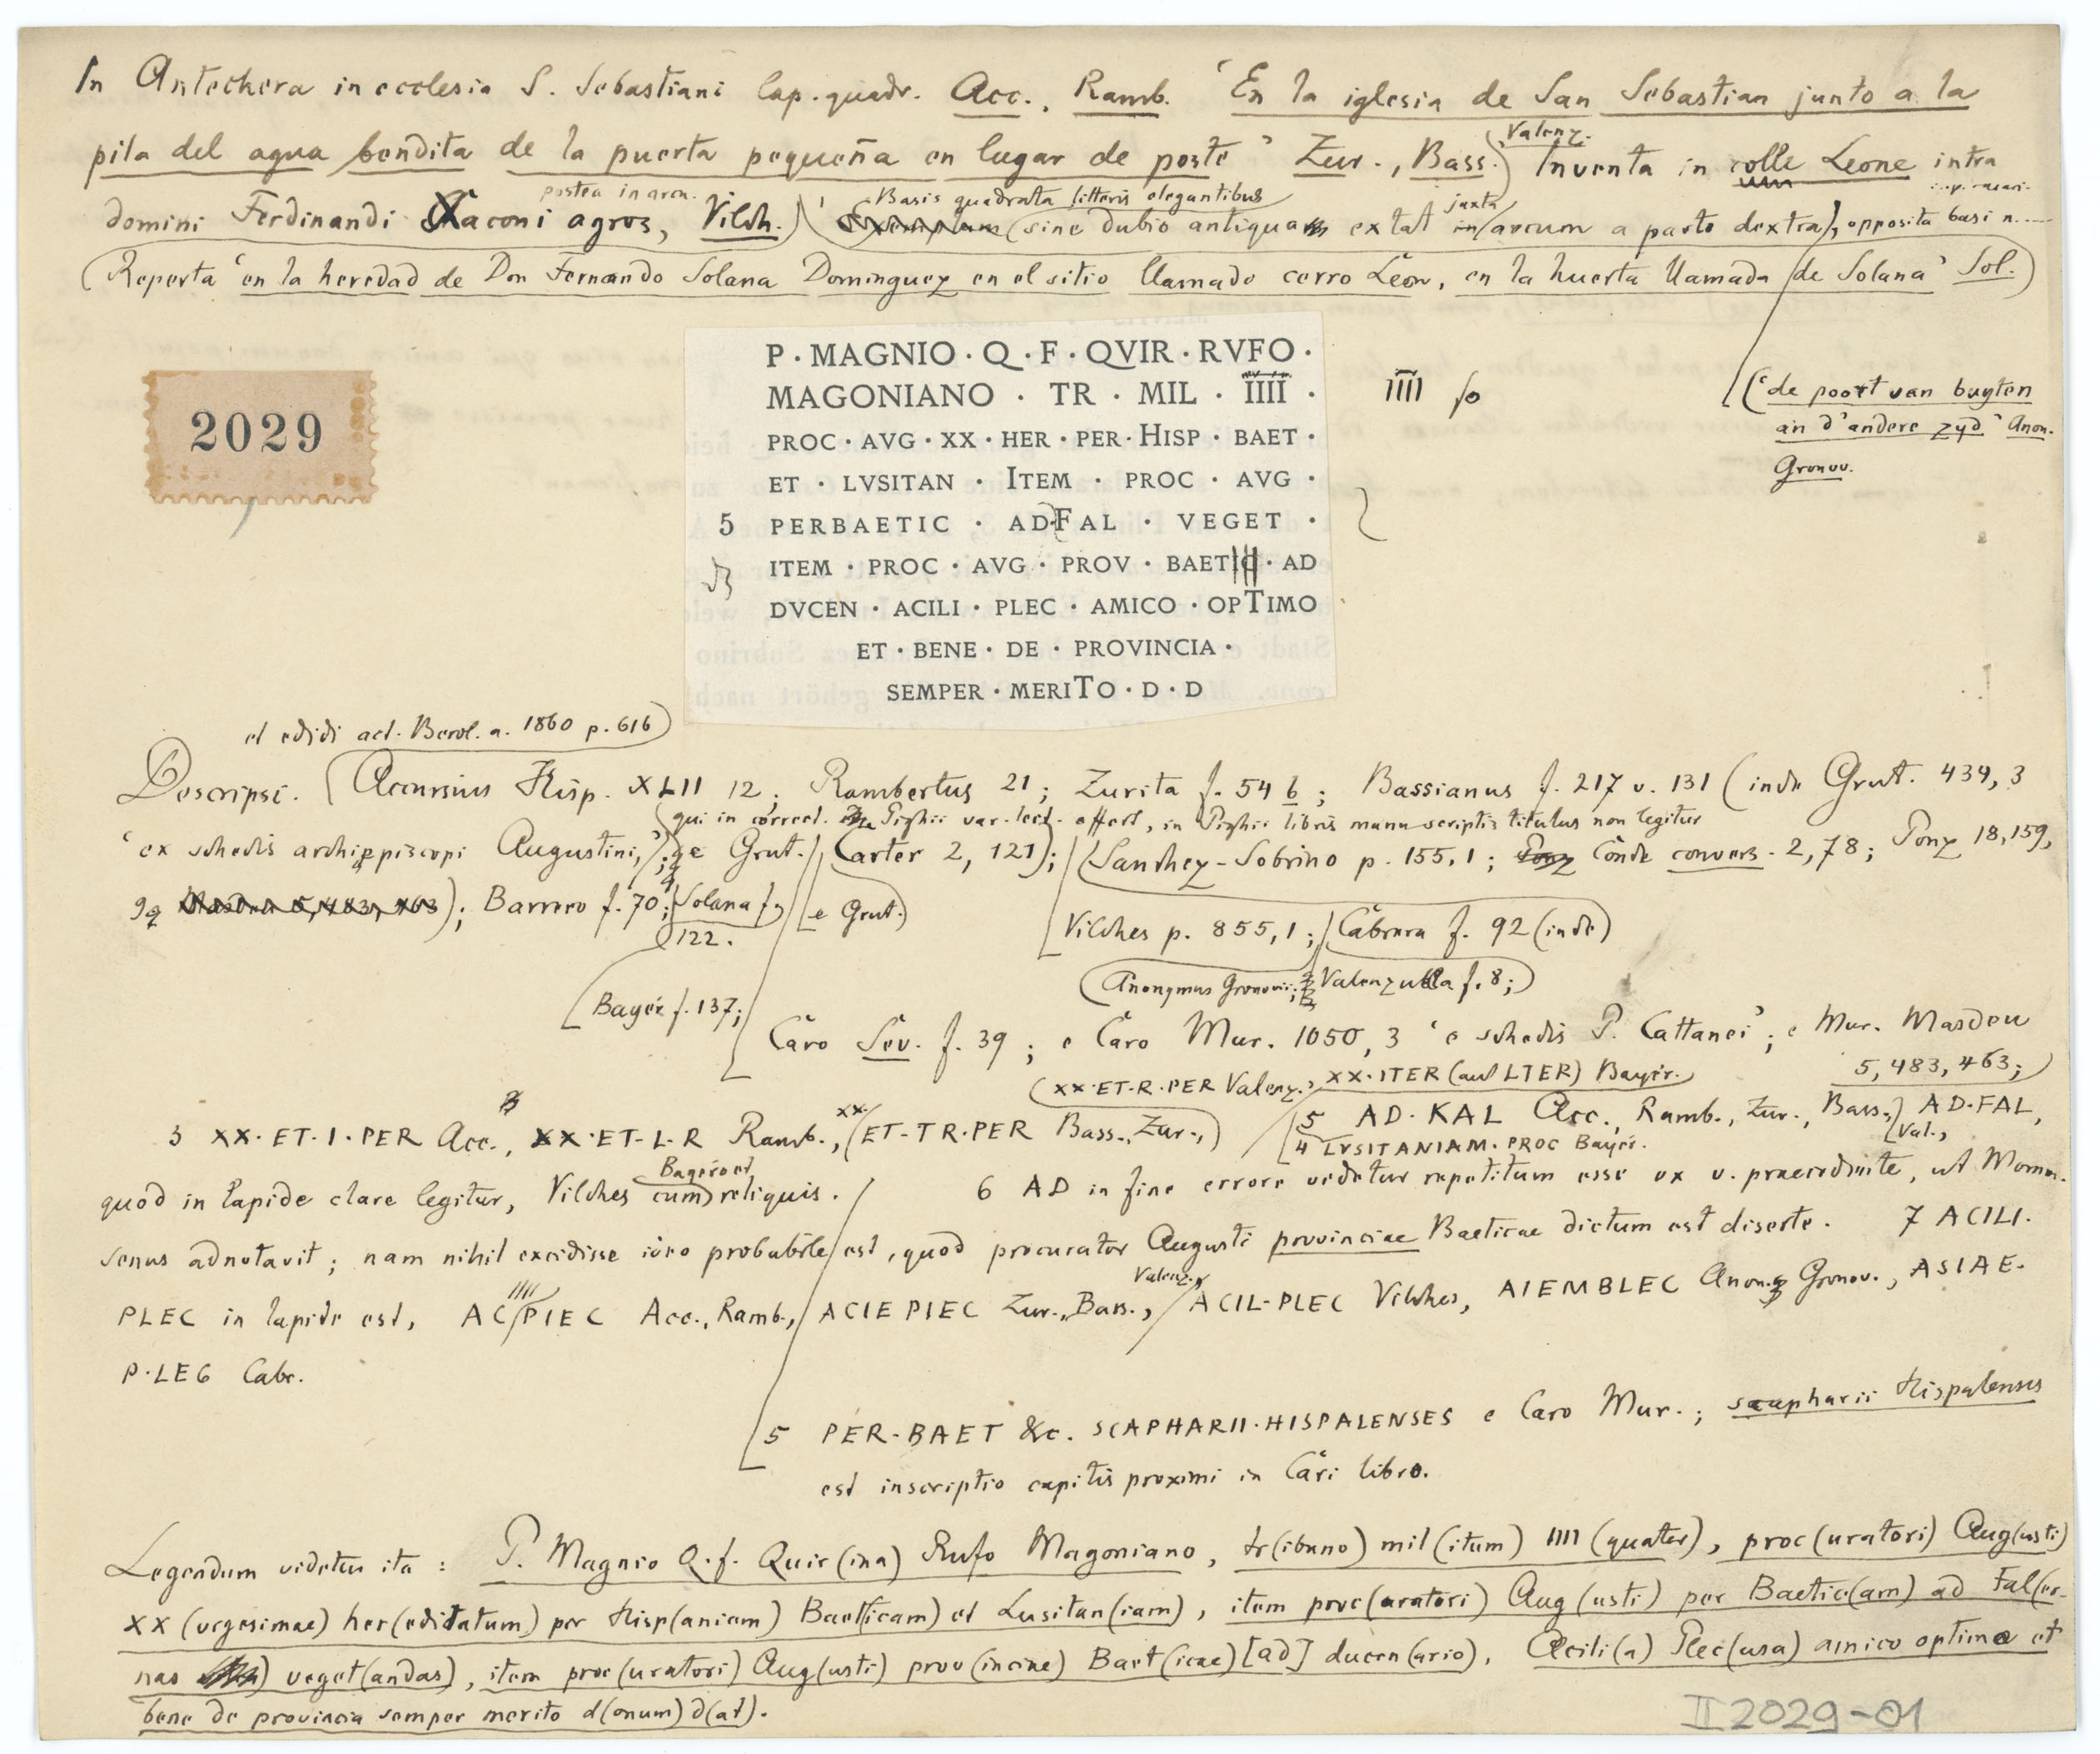 In Antechera in ecclesia S. Sebastiani lap. quadr. Acc., Ramb. 'En la iglesia de San Sebastian junto a la
Valenz.
pila del agua bendita de la puerta pequeña en lugar de poste' Zur., Bass.) Inventa in colle Leone intra
postea in arcu. Basis quadrata litteris elegantibus juxta
domini Ferdinandi Chaconi agros, Vilch.) (sine dubio antiqua extat in arcum a parte dextra), opposita basi n.
(Reperta 'en la heredad de Don Fernando Solana Dominguez en el sitio llamado cerro Leon, en la huerta llamada de Solana' Sol.)
P · MAGNIO · Q · F · QVIR · RVFO ·
MAGONIANO · TR · MIL · IIII ·
IIII so
PROC · AVG · XX · HER · PER · HISP · BAET ·
ET · LVSITAN · ITEM · PROC · AVG ·
5 PERBAETIC · AD FAL · VEGET ·
ITEM · PROC · AVG · PROV · BAET · AD
DVCEN · ACILI · PLEC · AMICO · OPTIMO
ET · BENE · DE · PROVINCIA ·
SEMPER · MERITO · D · D
2029
('de poort van buyten
an d'andere zyd' Anon.
Gronov.
et edidi act. Berol. a. 1860 p. 616)
Descripsi. (Accursius Hisp. XLII 12; Rambertus 21; Zurita f. 54 b; Bassianus f. 217 v. 131 (inde Grut. 434, 3
qui in correct. Pighii var. lect. affert, in Pighii libris manu scriptis titulus non legitur
'ex schedis archiepiscopi Augustini,'); e Grut. Carter 2, 121); Sanchez-Sobrino p. 155, 1; Conde convers. 2, 78; Ponz 18, 159,
Masdeu 5, 483, 463); Barrero f. 70; Solana f.
122.
e Grut.)
Vilches p. 855, 1; Cabrera f. 92 (inde)
(Anonymus Gronovii; Valenzuela f. 8;)
Bayer f. 137;
Caro Sev. f. 39; e Caro Mur. 1050, 3 'e schedis P. Cattanei'; e Mur. Masdeu
5, 483, 463;)
(XX·ET·R·PER Valenz., XX·ITER (aut LTER) Bayer.
3 XX·ET·I·PER Acc., XX·ET·L·R Ramb., XX·ET·TR·PER Bass., Zur.,) 5 AD·KAL Acc., Ramb., Zur., Bass., Val., AD·FAL,
4 LVSITANIAM·PROC Bayer.
quod in lapide clare legitur, Vilches Bayer et cum reliquis. 6 AD in fine errore videtur repetitum esse ex v. praecedente, ut Momm-
senus adnotavit; nam nihil excidisse ideo probabile est, quod procurator Augusti provinciae Baeticae dictum est diserte. 7 ACILI·
PLEC in lapide est, AC////PIEC Acc., Ramb., ACIE PIEC Zur., Bass., Valenz., ACIL·PLEC Vilches, AIEMBLEC Anon. Gronov., ASIAE·
P·LEG Cabr.
5 PER·BAET &c. SCAPHARII·HISPALENSES e Caro Mur.; scapharii Hispalenses
est inscriptio capitis proximi in Cari libro.
Legendum videtur ita: P. Magnio Q. f. Quir(ina) Rufo Magoniano, tr(ibuno) mil(itum) IIII (quater), proc(uratori) Aug(usti)
XX (vigesimae) her(editatum) per Hisp(aniam) Baet(icam) et Lusitan(iam), item proc(uratori) Aug(usti) per Baetic(am) ad Fal(er-
nas) veget(andas), item proc(uratori) Aug(usti) prov(inciae) Baet(icae) [ad] ducen(ario), Acili(a) Plec(usa) amico optimo et
bene de provincia semper merito d(onum) d(at).
II 2029-01